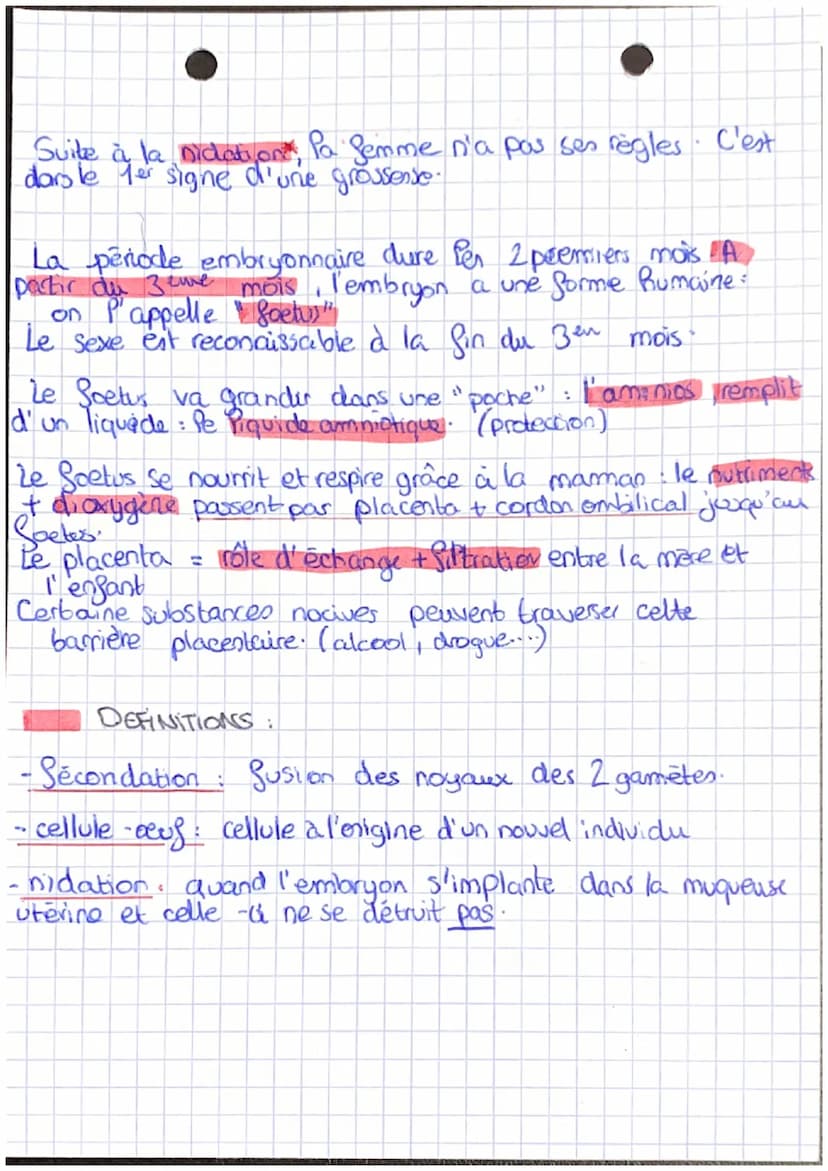 Suite à la nidation*, la femme n'a pas ses règles. C'est
dans le 1er signe d'une grossesse.
La période embryonnaire dure les 2 premiers mois. A
partir du 3eme mois, l'embryon a une forme humaine :
on l'appelle "foetus"
Le sexe est reconaissable à la fin du 3em mois.
Le foetus va grandir dans une "poche" : l'amnios, remplit
d'un liquide : le liquide amniotique. (protection)
Le foetus se nourrit et respire grâce à la maman : le nutriments
+ dioxygène passent par placenta + cordon ombilical jusqu'au
foetus.
Le placenta = rôle d'échange + filtration entre la mère et
l'enfant
Certaine substances nocives peuvent traverser cette
barrière placentaire. (alcool, drogue...)
DEFINITIONS :
- fécondation : fusion des noyaux des 2 gamètes.
- cellule-oeuf : cellule à l'origine d'un nouvel individu
- nidation : quand l'embryon s'implante dans la muqueuse
utérine et celle-ci ne se détruit pas.